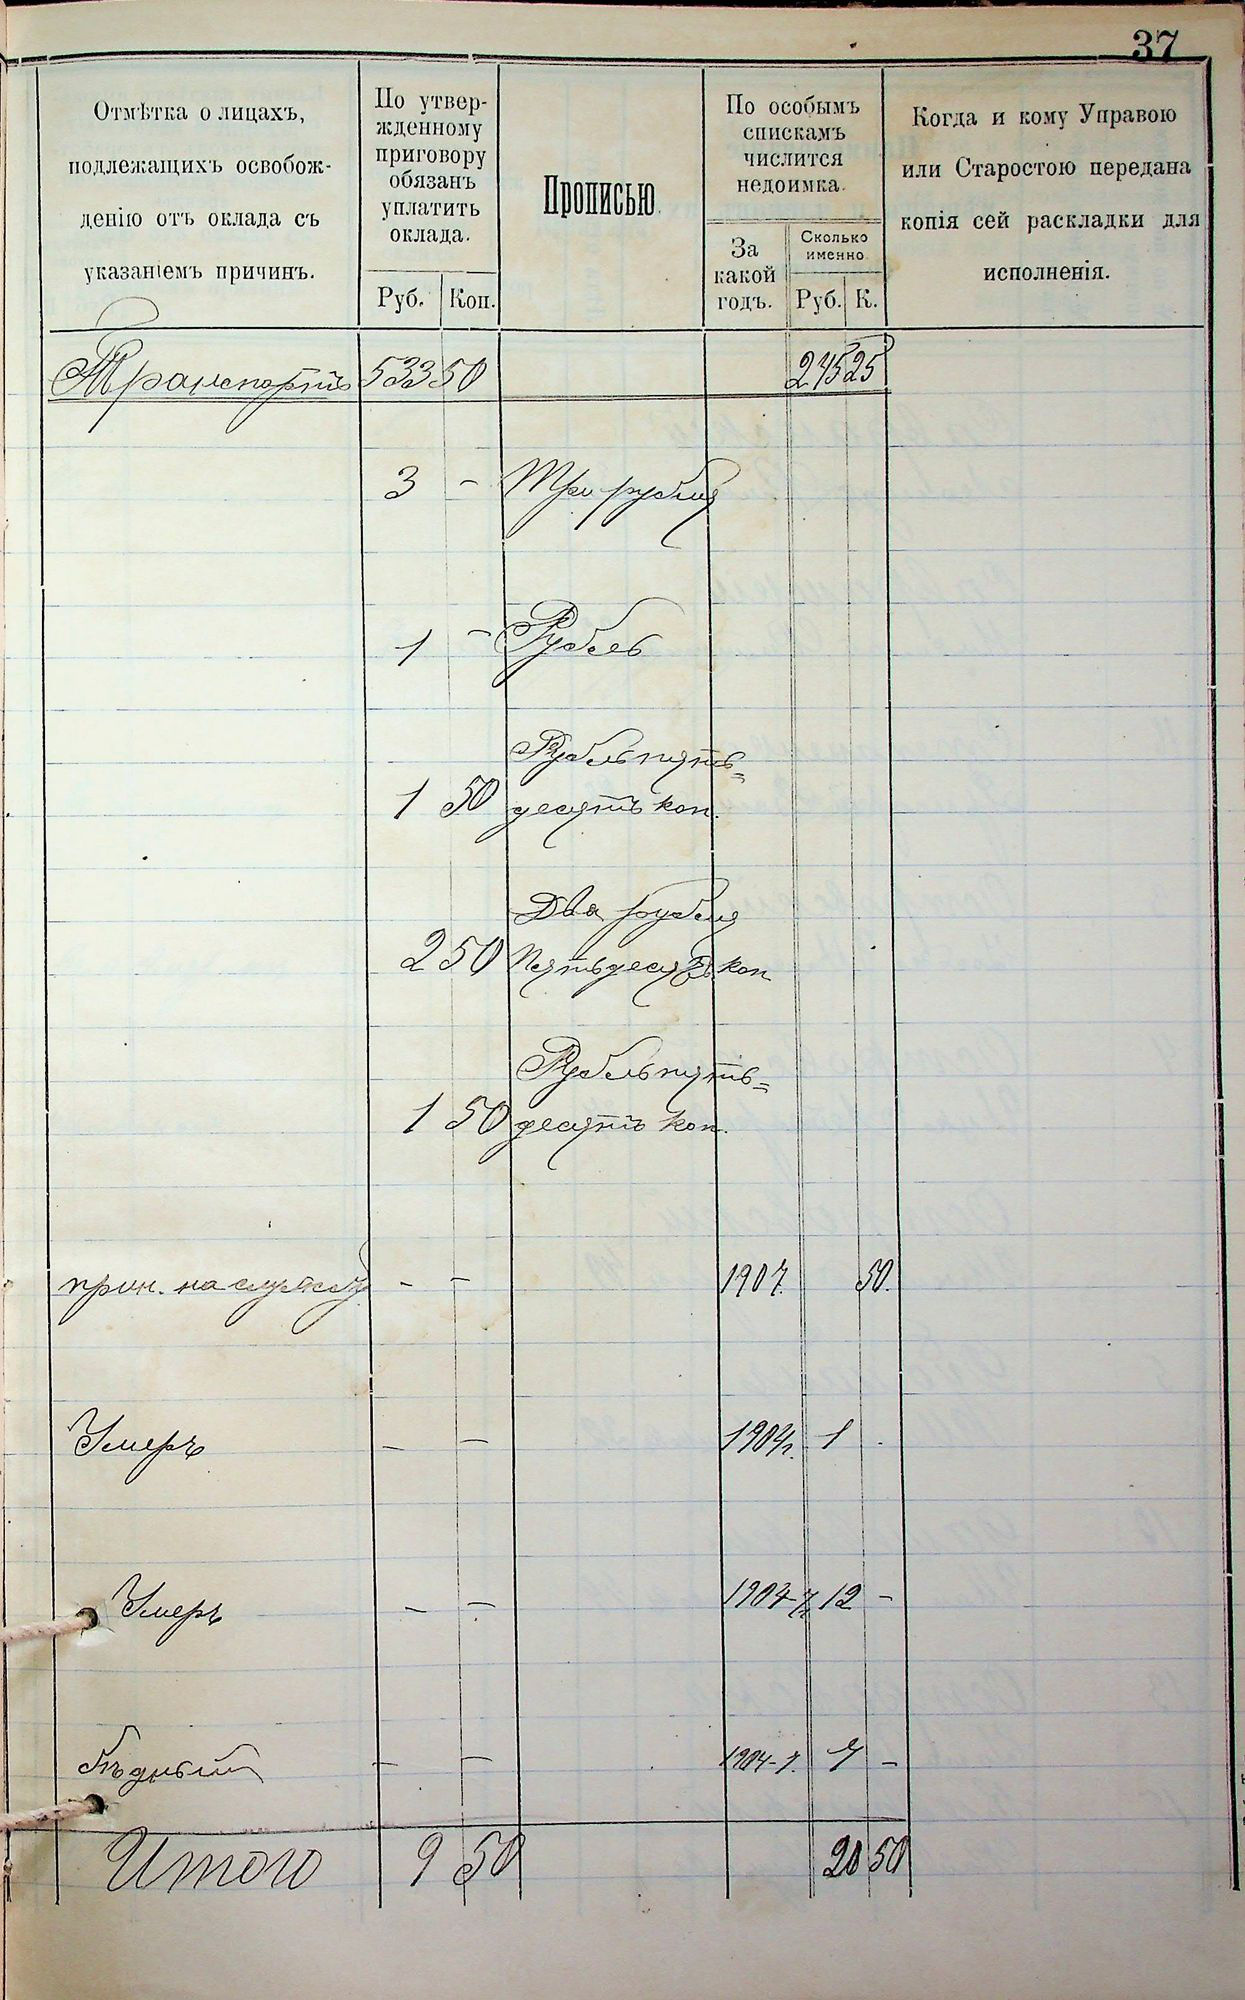 37
Отмѣтка о лицахъ,
подлежащихъ освобож-
денію отъ оклада съ
указаніемъ причинъ.
По утвер-
жденному
приговору
обязанъ
уплатить
оклада.
Руб. Коп.
Прописью.
По особымъ
спискамъ
числится
недоимка.
За
какой
годъ.
Сколько
именно
Руб. К.
Когда и кому Управою
или Старостою передана
копія сей раскладки для
исполненія.
Транспортъ 533 50 245 25
3 – Три рубля
1 – Рубль
Рубль пять=
1 50 десятъ коп.
Два рубля
2 50 Пятьдесятъ коп
Рубль пять=
1 50 десятъ коп.
прин. на службу – – 1907. 50.
Умеръ – – 1904г. 1 -
Умеръ – – 12 –
Бѣдный – – 1904-7. –
Итого 9 50 20 50